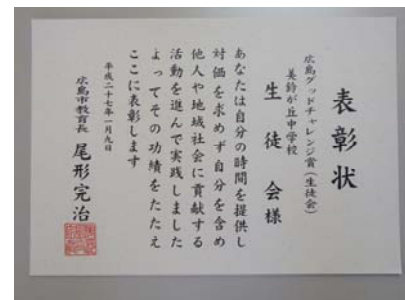 表彰状
広島グッドチャレンジ賞(生徒会)
美鈴が丘中学校
生徒会様
あなたは自分の時間を提供し
対価を求めず自分を含め
他人や地域社会に貢献する
活動を進んで実践しました
よってその功績をたたえ
ここに表彰します
平成二十七年一月九日
広島市教育長 尾形完治